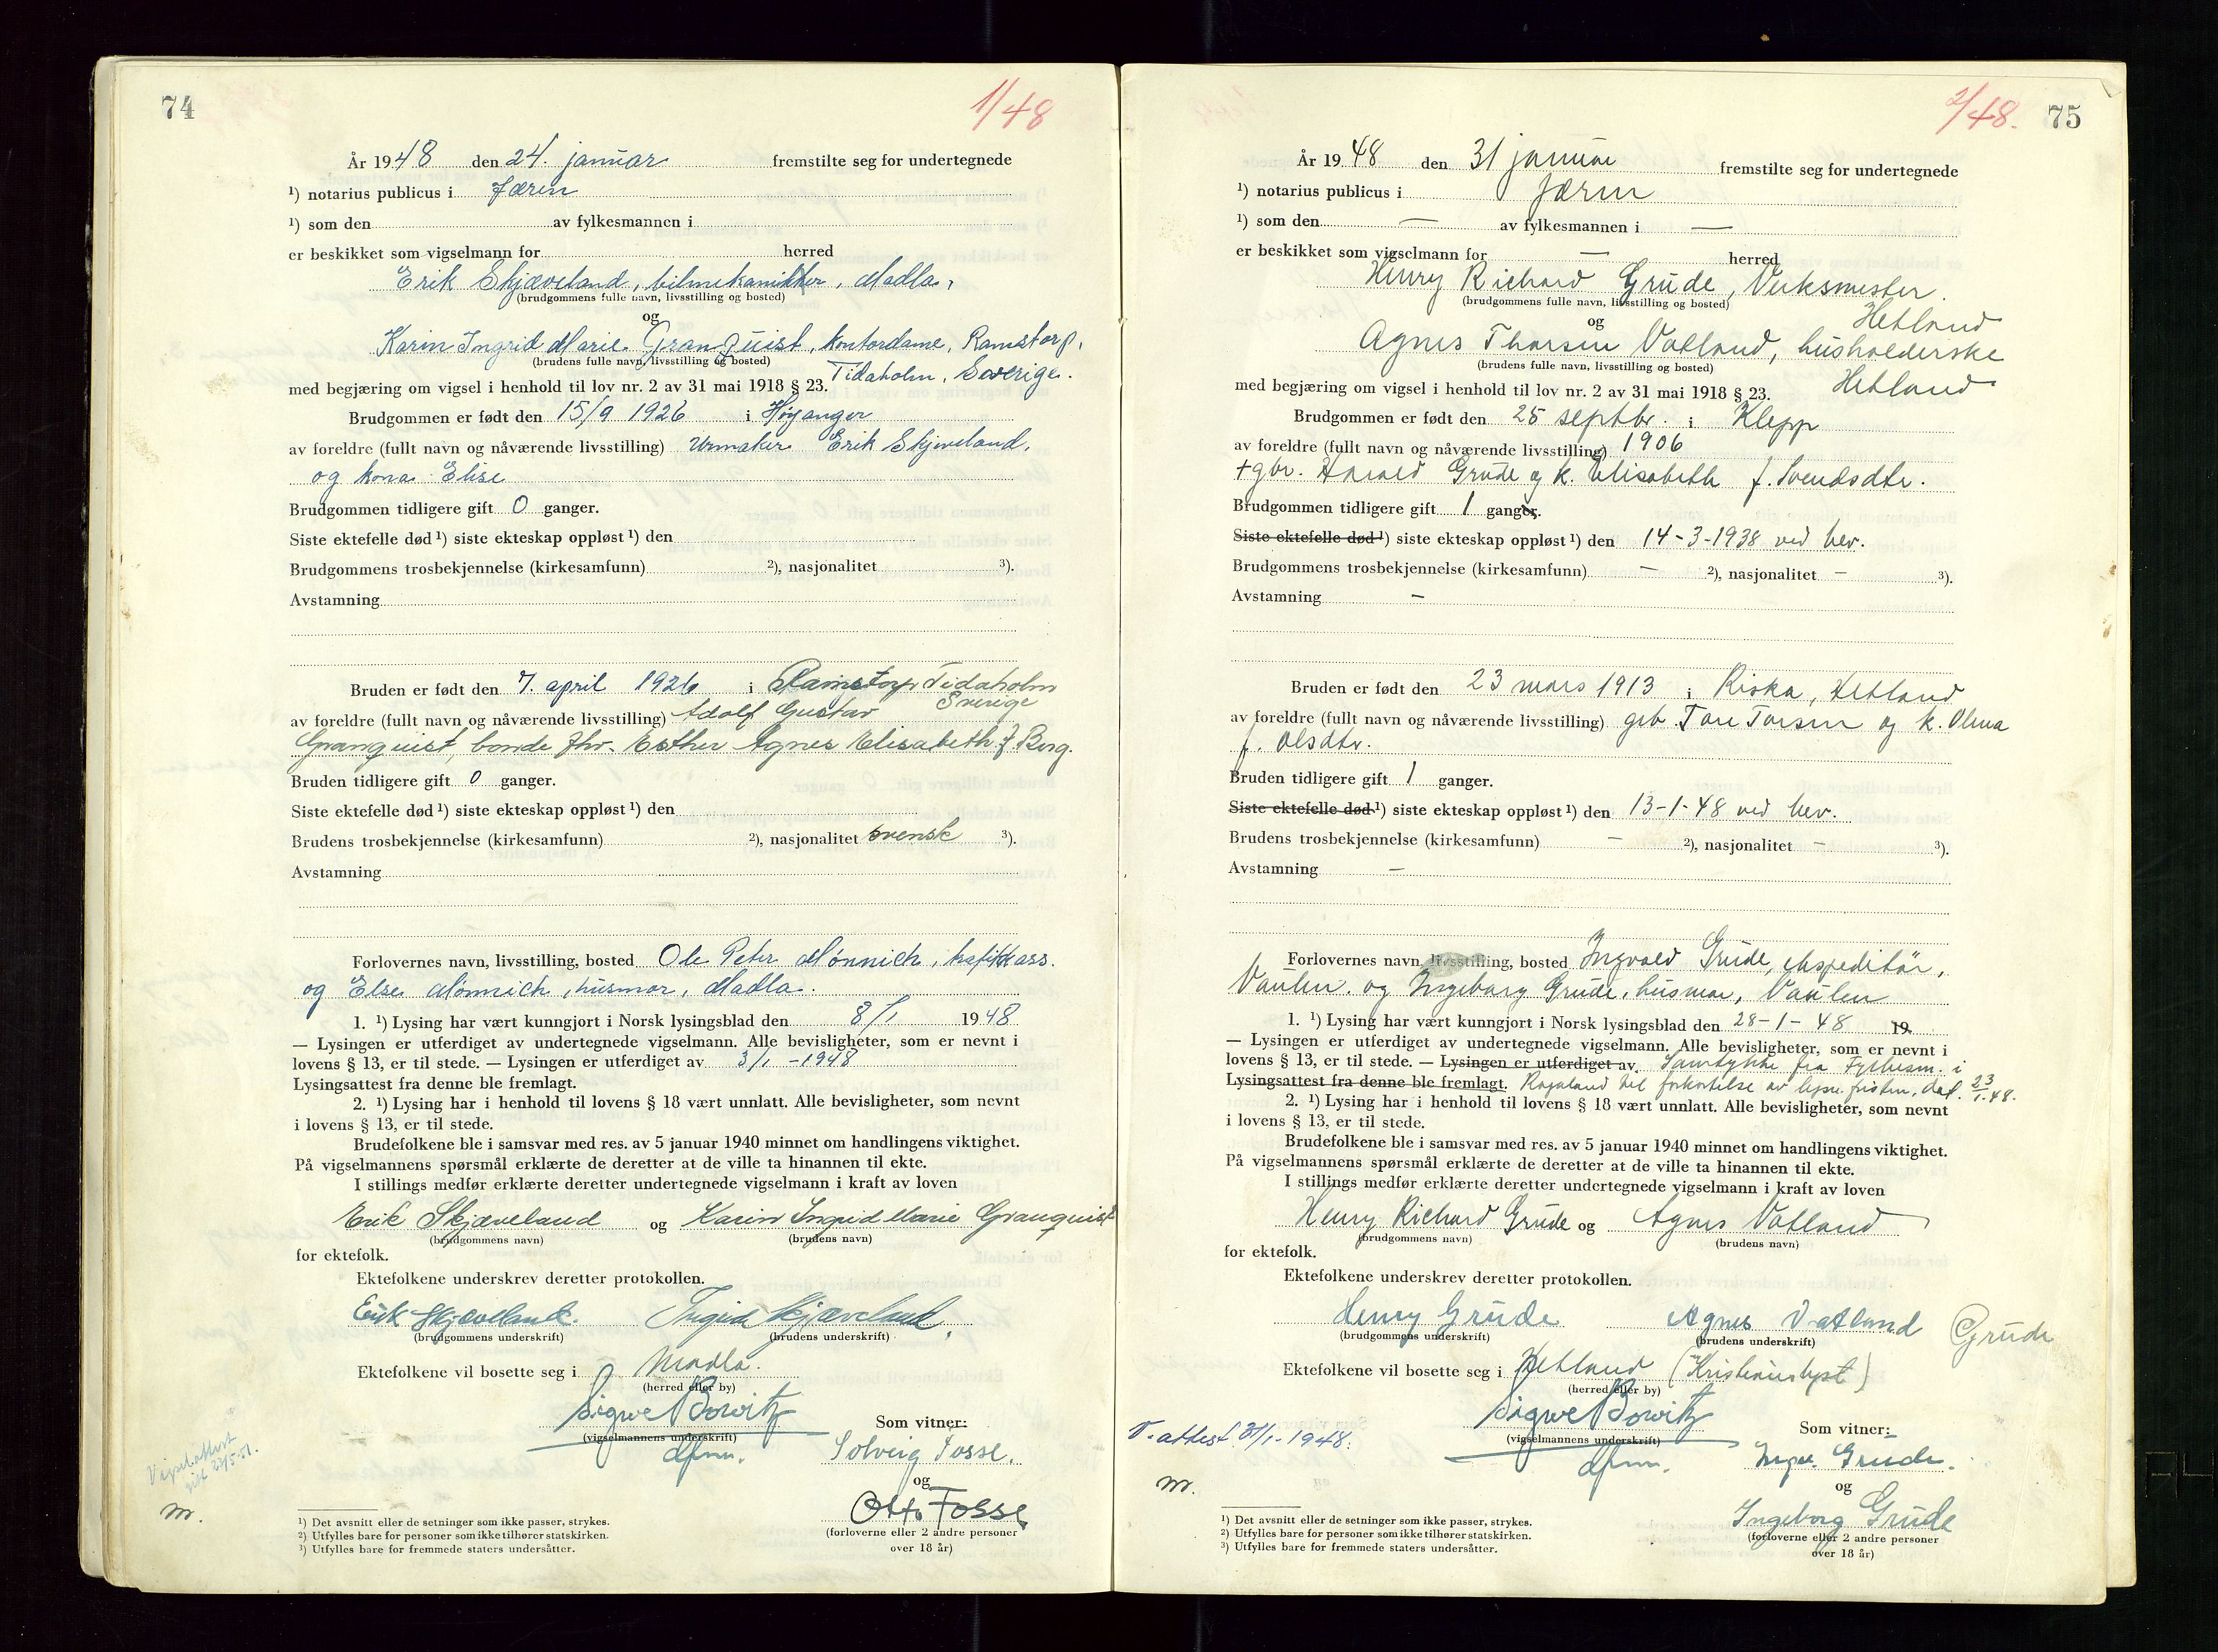 74
1/48
År 1948 den 24. januar fremstilte seg for undertegnede
¹) notarius publicus i Jæren
¹) som den av fylkesmannen i
er beskikket som vigselmann for herred
Erik Skjæveland, bilmekaniker, Madla,
(brudgommens fulle navn, livsstilling og bosted)
og
Karin Ingrid Marie Granquist, kontordame, Ramstorp,
(brudens fulle navn, livsstilling og bosted)
Tidaholm, Sverige.
med begjæring om vigsel i henhold til lov nr. 2 av 31 mai 1918 § 23.
Brudgommen er født den 15/9 1926 i Høyanger
av foreldre (fullt navn og nåværende livsstilling) Urmaker Erik Skjæveland,
og kona Elise
Brudgommen tidligere gift 0 ganger.
Siste ektefelle død ¹) siste ekteskap oppløst ¹) den
Brudgommens trosbekjennelse (kirkesamfunn) ²), nasjonalitet ³).
Avstamning
Bruden er født den 7. april 1926 i Ramstorp Tidaholm
Sverige
av foreldre (fullt navn og nåværende livsstilling) Adolf Gustav
Granquist, bonde fhv. Esther Agnes Elisabeth f. Berg.
Bruden tidligere gift 0 ganger.
Siste ektefelle død ¹) siste ekteskap oppløst ¹) den
Brudens trosbekjennelse (kirkesamfunn) ²), nasjonalitet svensk ³).
Avstamning
Forlovernes navn, livsstilling, bosted Ole Peter Mønnich, trafikkass.
og Else Mønnich, husmor, Madla.
1. ¹) Lysing har vært kunngjort i Norsk lysingsblad den 8/1 1948
— Lysingen er utferdiget av undertegnede vigselmann. Alle bevisligheter, som er nevnt i
lovens § 13, er til stede. — Lysingen er utferdiget av 3/1 - 1948
Lysingsattest fra denne ble fremlagt.
2. ¹) Lysing har i henhold til lovens § 18 vært unnlatt. Alle bevisligheter, som nevnt
i lovens § 13, er til stede.
Brudefolkene ble i samsvar med res. av 5 januar 1940 minnet om handlingens viktighet.
På vigselmannens spørsmål erklærte de deretter at de ville ta hinannen til ekte.
I stillings medfør erklærte deretter undertegnede vigselmann i kraft av loven
Erik Skjæveland og Karin Ingrid Marie Granquist
(brudgommens navn) (brudens navn)
for ektefolk.
Ektefolkene underskrev deretter protokollen.
Erik Skjæveland. Ingrid Skjæveland.
(brudgommens underskrift) (brudens underskrift)
Ektefolkene vil bosette seg i Madla.
(herred eller by)
Sigwe Bowitz
(vigselmannens underskrift)
dfm.
Som vitner:
Solveig Fosse.
og
Otto Fosse
(forloverne eller 2 andre personer
over 18 år)
Vigselsattest
utst 22/5-51.
m.
¹) Det avsnitt eller de setninger som ikke passer, strykes.
²) Utfylles bare for personer som ikke tilhører statskirken.
³) Utfylles bare for fremmede staters undersåtter.
2/48. 75
År 1948 den 31 januar fremstilte seg for undertegnede
¹) notarius publicus i Jæren
¹) som den — av fylkesmannen i —
er beskikket som vigselmann for — herred
Henry Richard Grude, Verksmester.
(brudgommens fulle navn, livsstilling og bosted)
Hetland
og
Agnes Tharsen Vatland, husholderske
(brudens fulle navn, livsstilling og bosted)
Hetland
med begjæring om vigsel i henhold til lov nr. 2 av 31 mai 1918 § 23.
Brudgommen er født den 25 septbr. i Klepp
av foreldre (fullt navn og nåværende livsstilling) 1906
+gbr. Harald Grude og k. Elisabeth f. Svendsdtr.
Brudgommen tidligere gift 1 ganger.
Siste ektefelle død ¹) siste ekteskap oppløst ¹) den 14-3-1938 ved bev.
Brudgommens trosbekjennelse (kirkesamfunn) — ²), nasjonalitet — ³).
Avstamning —
Bruden er født den 23 mars 1913 i Riska, Hetland
av foreldre (fullt navn og nåværende livsstilling) gbr. Tore Torsen og k. Olena
f. Olsdtr.
Bruden tidligere gift 1 ganger.
Siste ektefelle død ¹) siste ekteskap oppløst ¹) den 13-1-48 ved bev.
Brudens trosbekjennelse (kirkesamfunn) — ²), nasjonalitet — ³).
Avstamning —
Forlovernes navn, livsstilling, bosted Ingvald Grude, ekspeditør,
Vaulen. og Ingeborg Grude, husmor, Vaulen
1. ¹) Lysing har vært kunngjort i Norsk lysingsblad den 28-1-48 19
— Lysingen er utferdiget av undertegnede vigselmann. Alle bevisligheter, som er nevnt i
lovens § 13, er til stede. — Lysingen er utferdiget av. Samtykke fra Fylkesm. i
Lysingsattest fra denne ble fremlagt. Rogaland til forkortelse av lysn. fristen, dat. 23/1.48.
2. ¹) Lysing har i henhold til lovens § 18 vært unnlatt. Alle bevisligheter, som nevnt
i lovens § 13, er til stede.
Brudefolkene ble i samsvar med res. av 5 januar 1940 minnet om handlingens viktighet.
På vigselmannens spørsmål erklærte de deretter at de ville ta hinannen til ekte.
I stillings medfør erklærte deretter undertegnede vigselmann i kraft av loven
Henry Richard Grude og Agnes Vatland
(brudgommens navn) (brudens navn)
for ektefolk.
Ektefolkene underskrev deretter protokollen.
Henry Grude Agnes Vatland Grude
(brudgommens underskrift) (brudens underskrift)
Ektefolkene vil bosette seg i Hetland (Kristianslyst)
(herred eller by)
Sigwe Bowitz
(vigselmannens underskrift)
dfm.
V. attest 31/1-1948.
m.
Som vitner:
Ingv. Grude.
og
Ingeborg Grude
(forloverne eller 2 andre personer
over 18 år)
¹) Det avsnitt eller de setninger som ikke passer, strykes.
²) Utfylles bare for personer som ikke tilhører statskirken.
³) Utfylles bare for fremmede staters undersåtter.